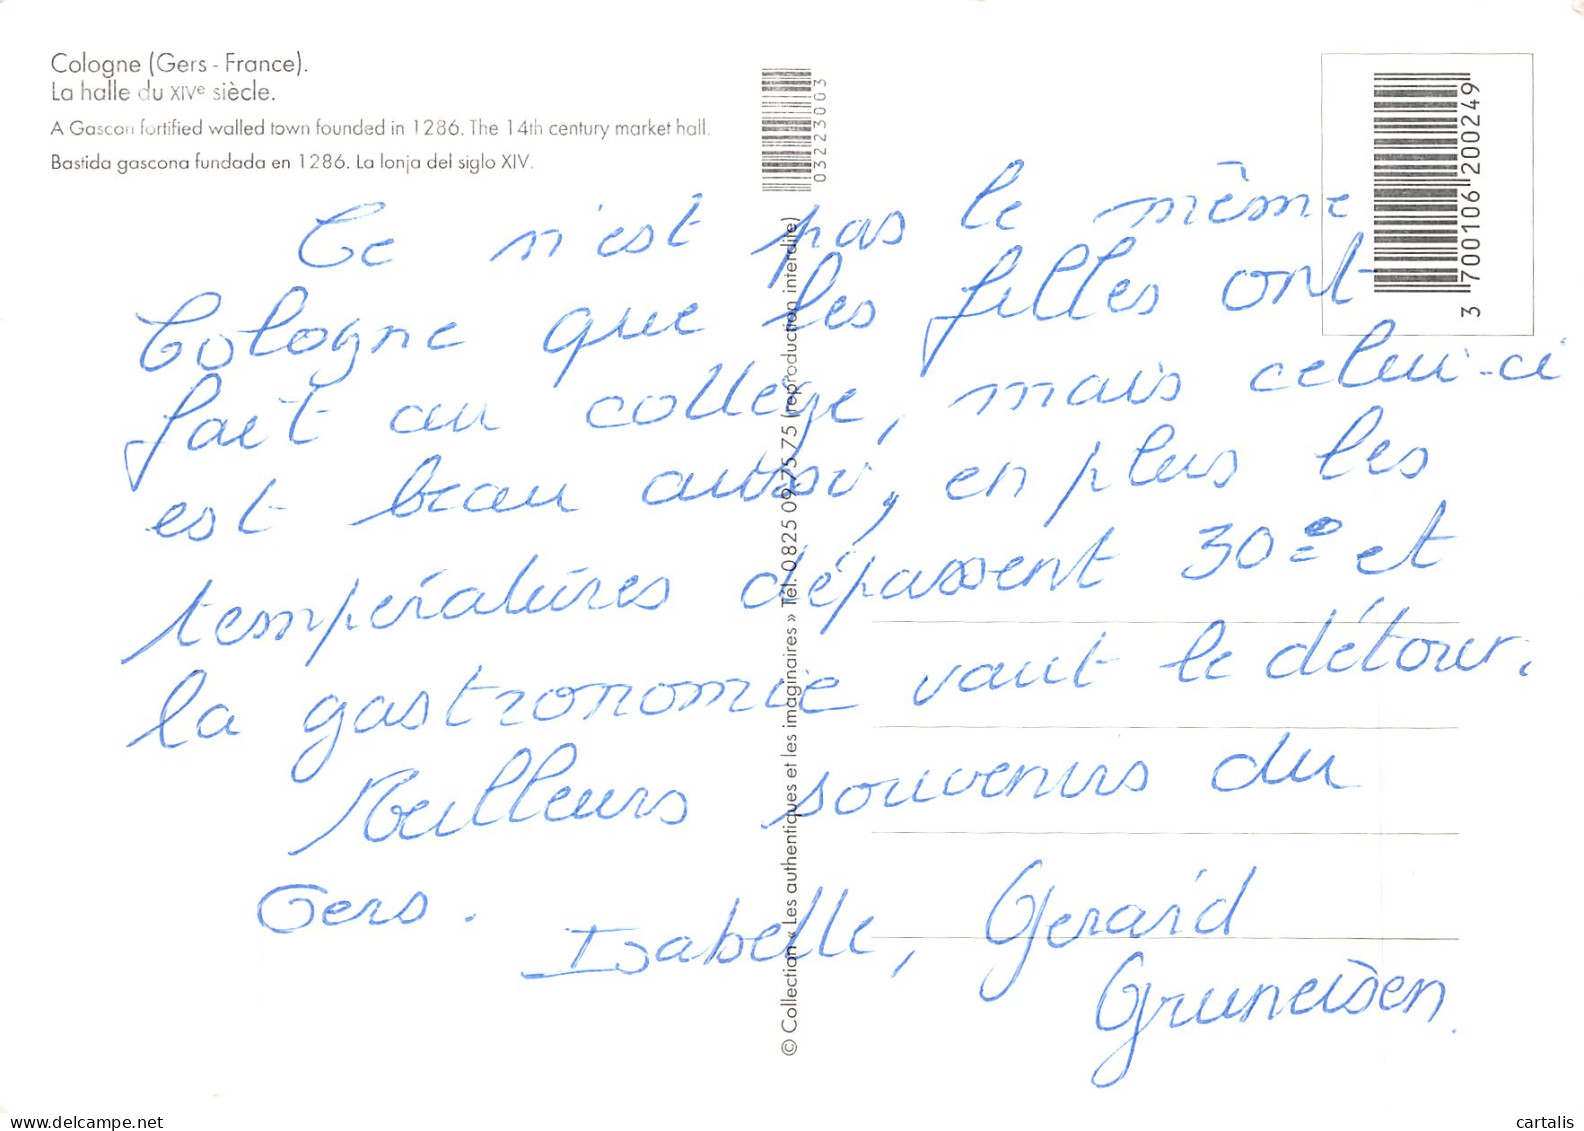 Cologne (Gers - France).
La halle du XIVe siècle.
A Gascon fortified walled town founded in 1286. The 14th century market hall.
Bastida gascona fundada en 1286. La lonja del siglo XIV.
03223003
3 700106 200249
© Collection « Les authentiques et les imaginaires » Tél. 0 825 09 75 75 (reproduction interdite)
Ce n'est pas le même
Cologne que les filles ont
fait au collège, mais celui-ci
est beau aussi, en plus les
températures dépassent 30° et
la gastronomie vaut le détour.
Meilleurs souvenirs du
Gers.
Isabelle, Gerard
Gruneisen.
www.delcampe.net
cartalis